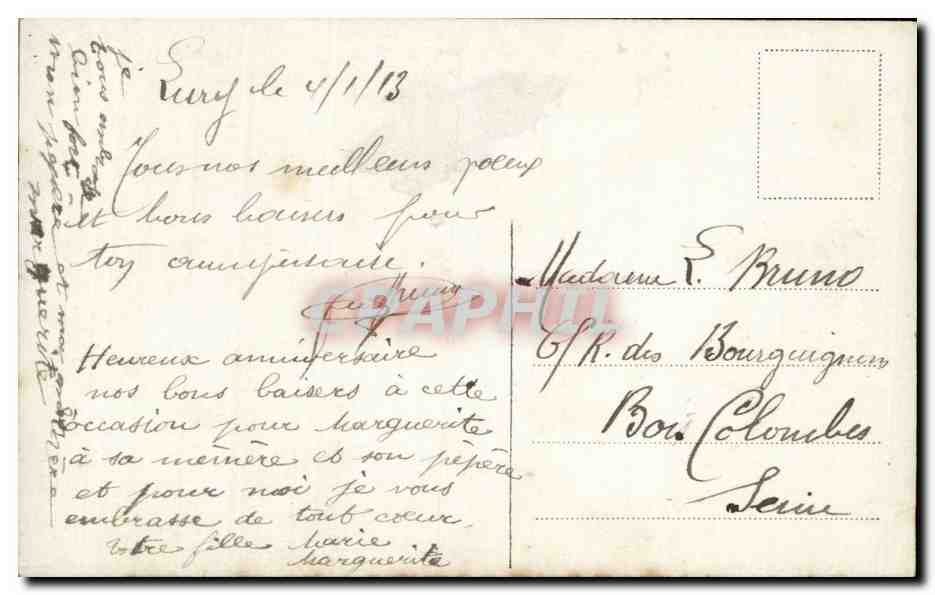 Lury le 4/1/13
Tous nos meilleurs voeux
et bons baisers pour
ton anniversaire.
Heureux anniversaire
nos bons baisers à cette
occasion pour Marguerite
à sa mémère et son pépère
et pour moi je vous
embrasse de tout coeur.
votre fille Marie
Marguerite
je
vous embrasse
bien fort
mon pépère et ma mémère
marguerite
Madame L. Bruno
6/R. des Bourguignons
Bois Colombes
Seine
CPAPHIL